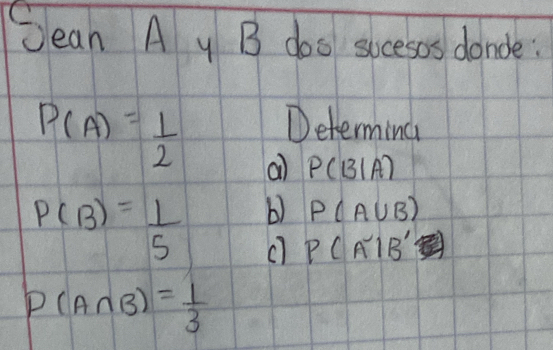 Sean A y B dos sucesos donde:
P(A) = 1/2
Determina
a) P(B|A)
P(B) = 1/5
b) P(A∪B)
c) P(A'|B')
P(A∩B) = 1/3